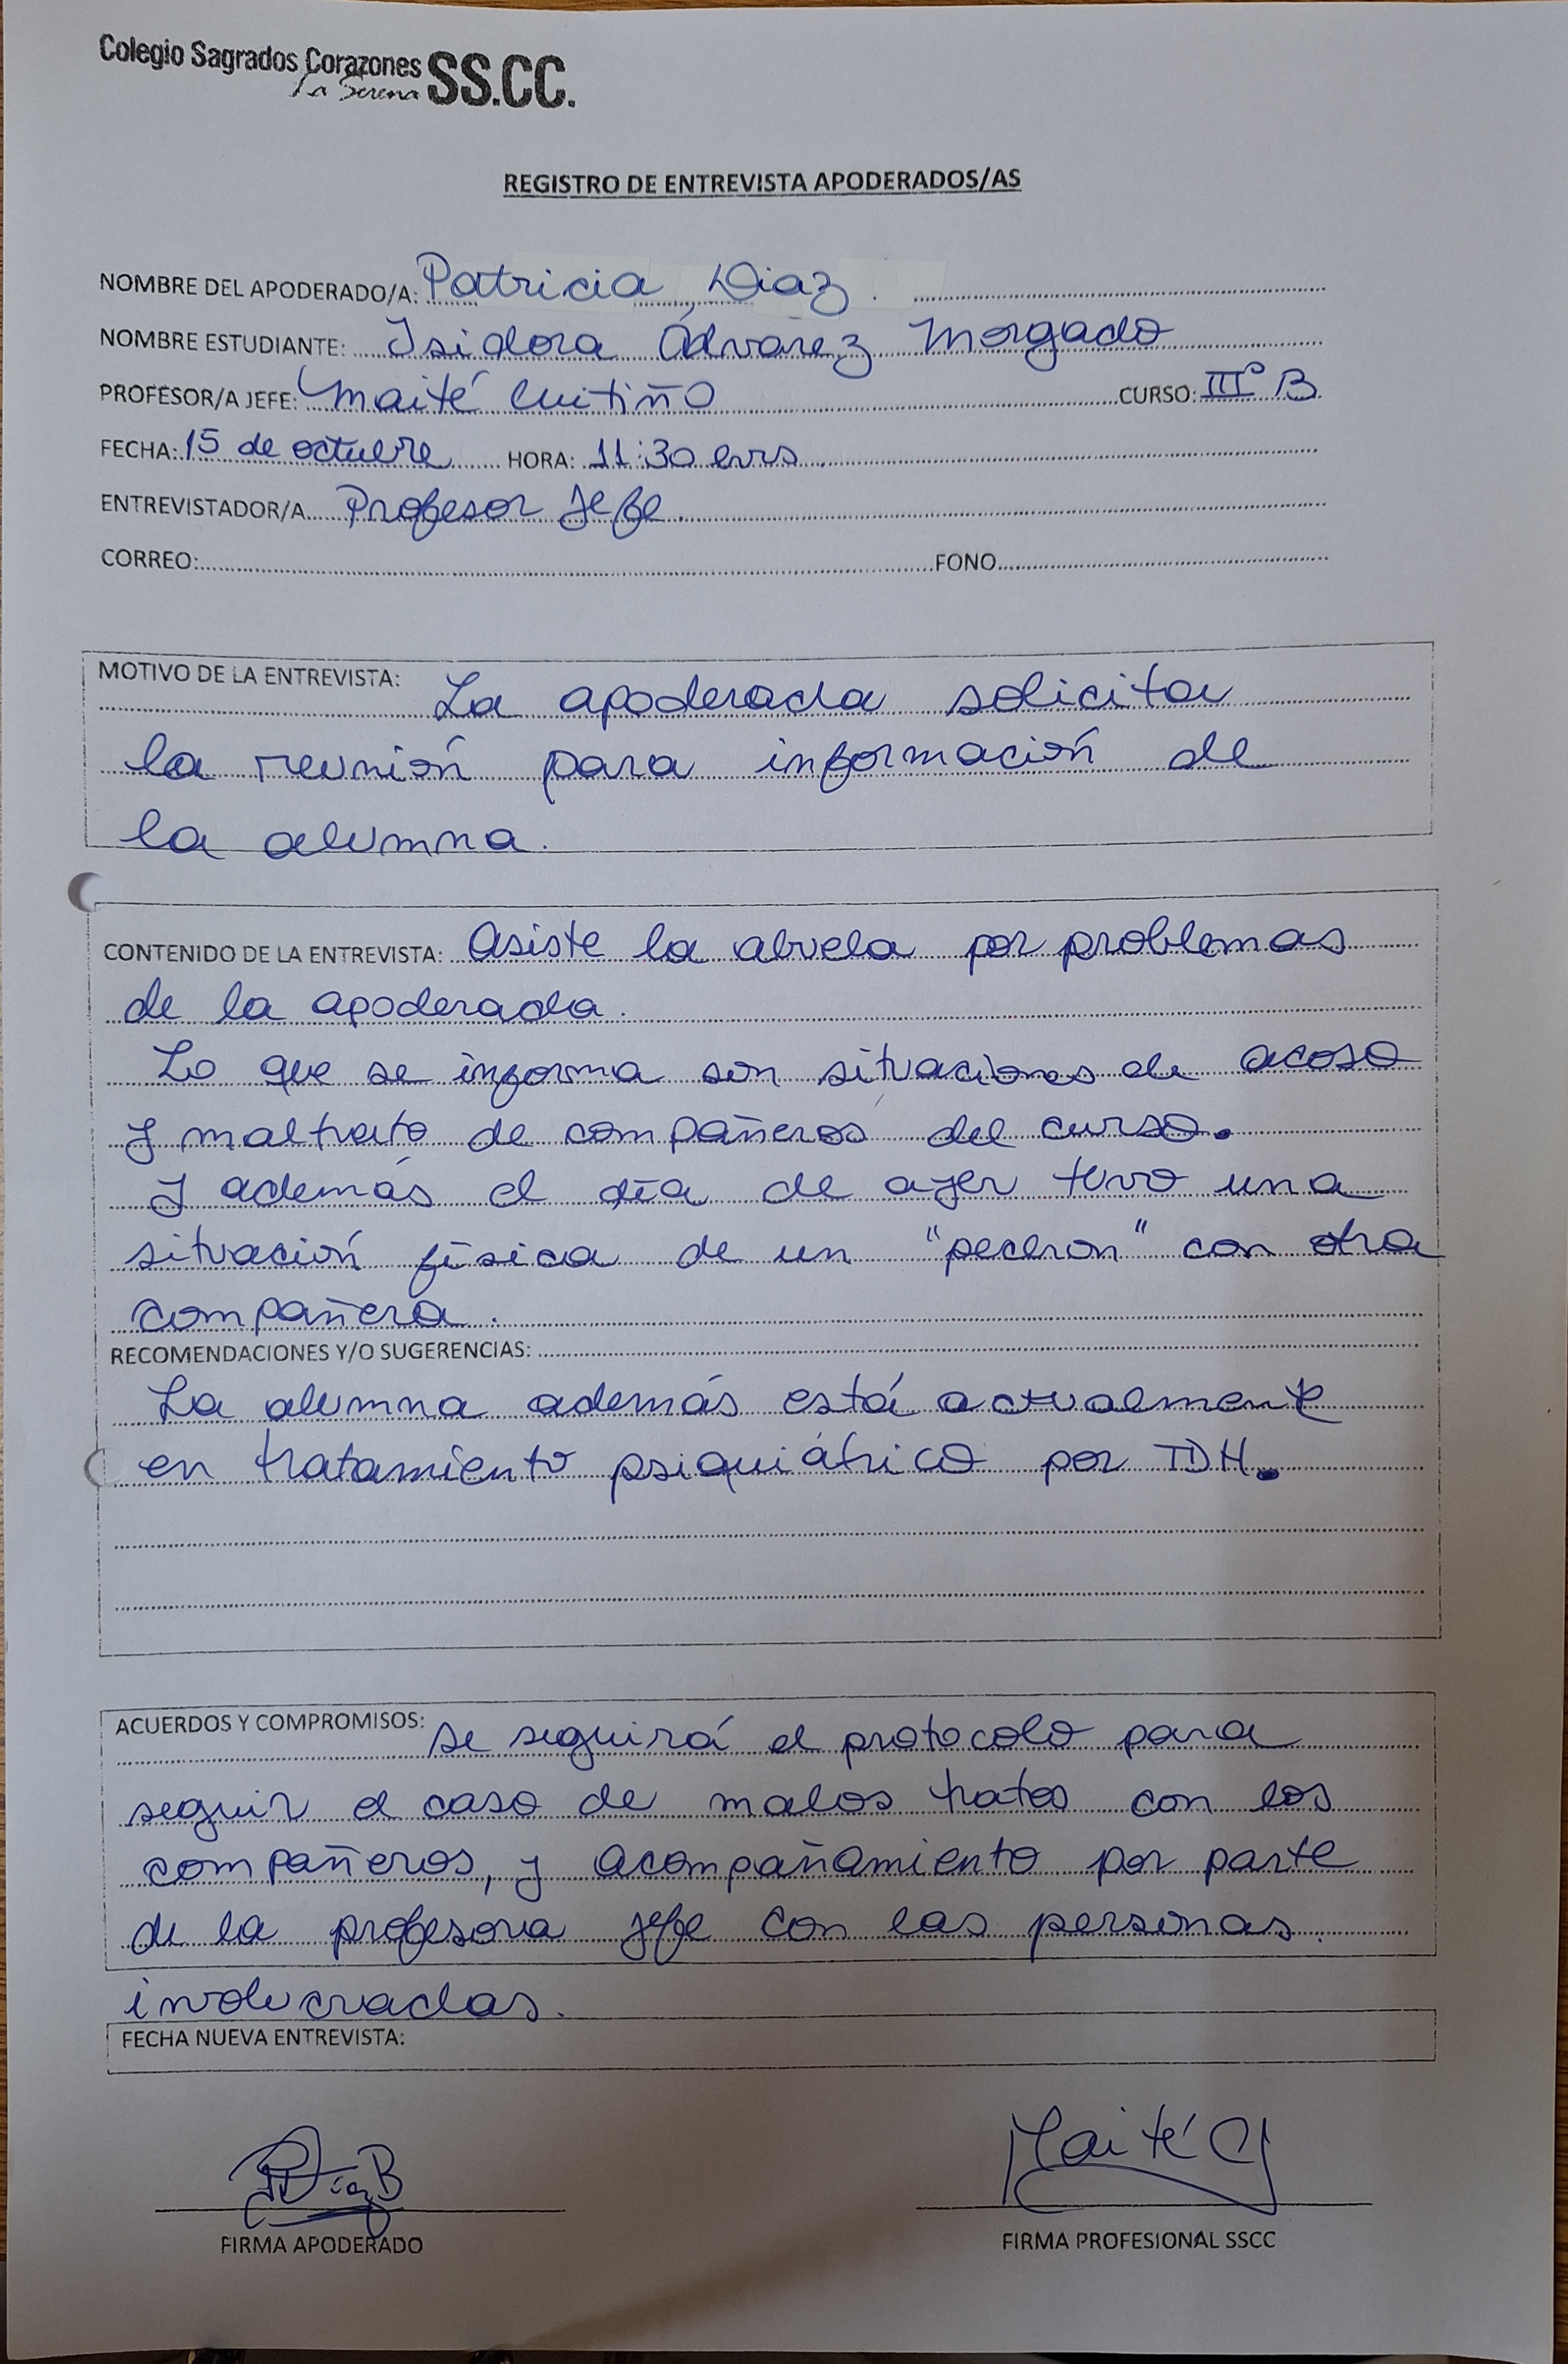 Colegio Sagrados Corazones SS.CC.
La Serena
REGISTRO DE ENTREVISTA APODERADOS/AS
NOMBRE DEL APODERADO/A: Patricia Diaz.
NOMBRE ESTUDIANTE: Isidora Álvarez Morgado
PROFESOR/A JEFE: Maité Cuitiño CURSO: III° B
FECHA: 15 de octubre HORA: 11:30 hrs.
ENTREVISTADOR/A Profesor Jefe.
CORREO: FONO
MOTIVO DE LA ENTREVISTA: La apoderada solicita
la reunión para información de
la alumna.
CONTENIDO DE LA ENTREVISTA: Asiste la abuela por problemas
de la apoderada.
Lo que se informa son situaciones de acoso
y maltrato de compañeros del curso.
Y además el día de ayer tuvo una
situación física de un "pechon" con otra
compañera.
RECOMENDACIONES Y/O SUGERENCIAS:
La alumna además está actualmente
en tratamiento psiquiátrico por TDH.
ACUERDOS Y COMPROMISOS: Se seguirá el protocolo para
seguir el caso de malos tratos con los
compañeros, y acompañamiento por parte
de la profesora jefe con las personas.
involucradas.
FECHA NUEVA ENTREVISTA:
PDíaz B
Maité C
FIRMA APODERADO
FIRMA PROFESIONAL SSCC